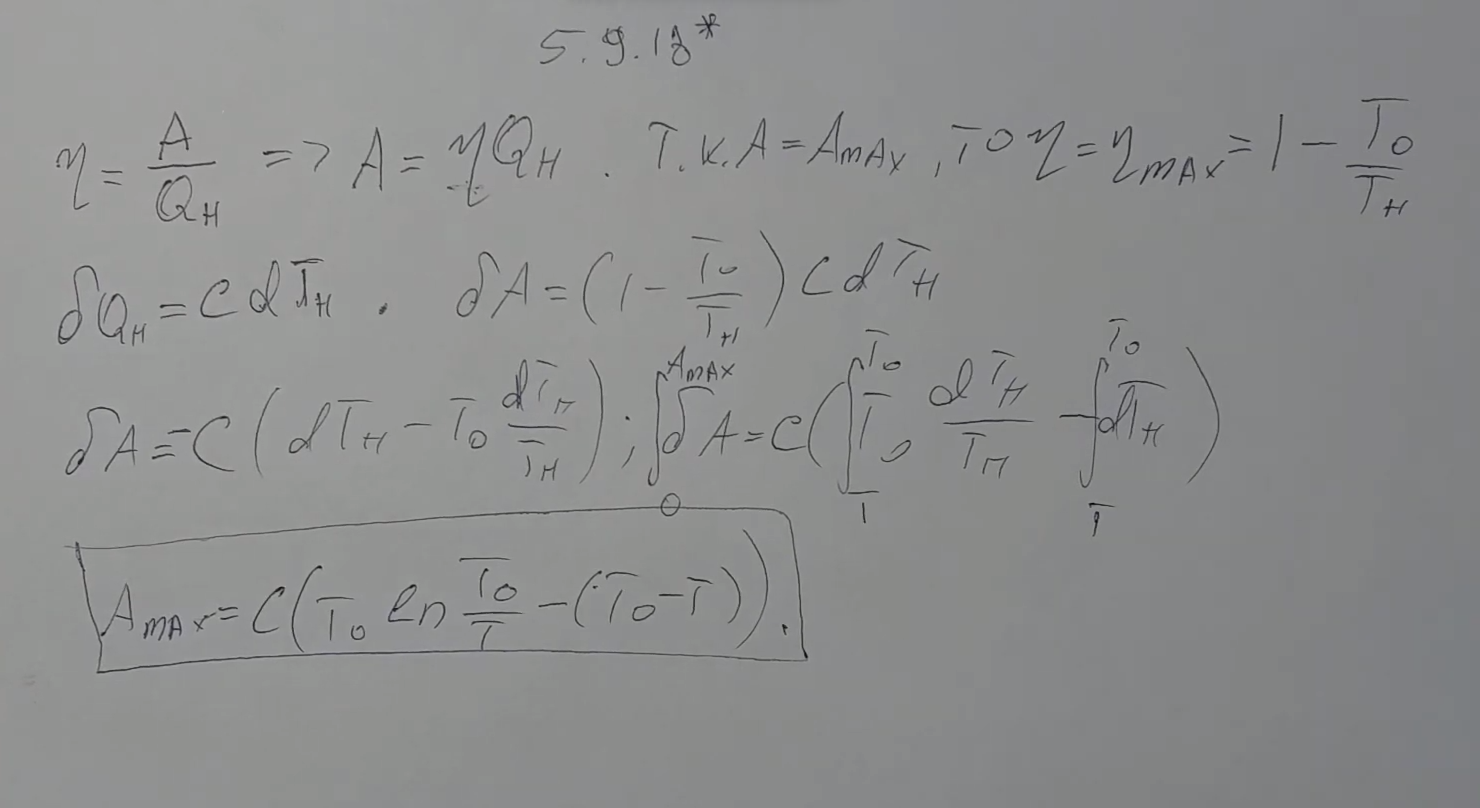 5.9.18*
η = A/Q_H => A = ηQ_H. Т.к. A = A_max, то η = η_max = 1 - T_0/T_H
δQ_H = C dT_H. δA = (1 - T_0/T_H) C dT_H
δA = -C (dT_H - T_0 dT_H/T_H); ∫_0^{A_max} δA = C (∫_T^{T_0} T_0 dT_H/T_H - ∫_T^{T_0} dT_H)
A_max = C (T_0 ln T_0/T - (T_0 - T)).